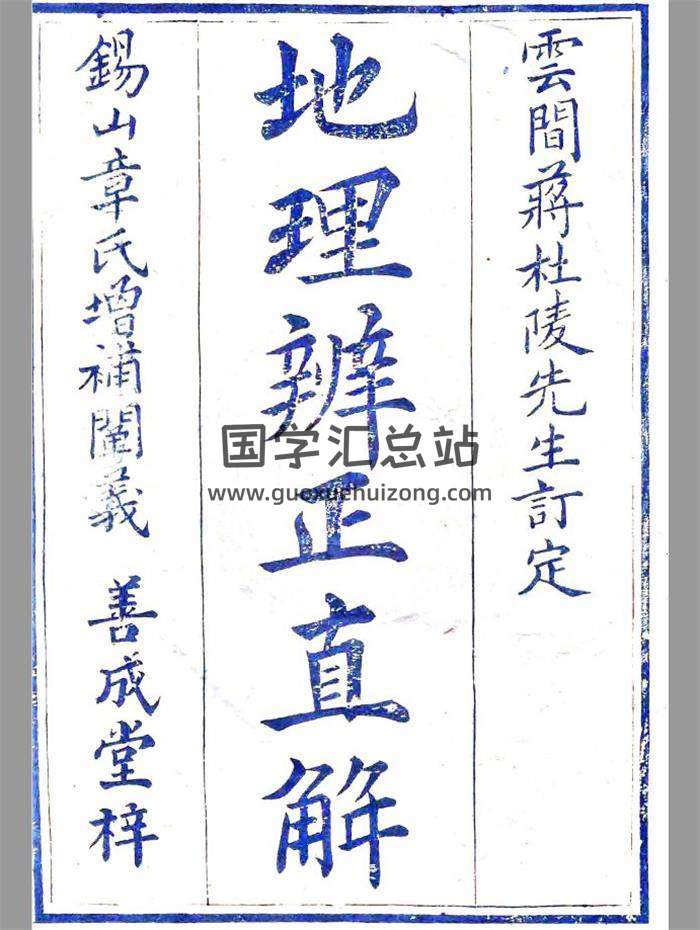 雲間蔣杜陵先生訂定
地理辨正直解
錫山章氏增補闡義 善成堂梓
国学汇总站
www.guoxuehuizong.com